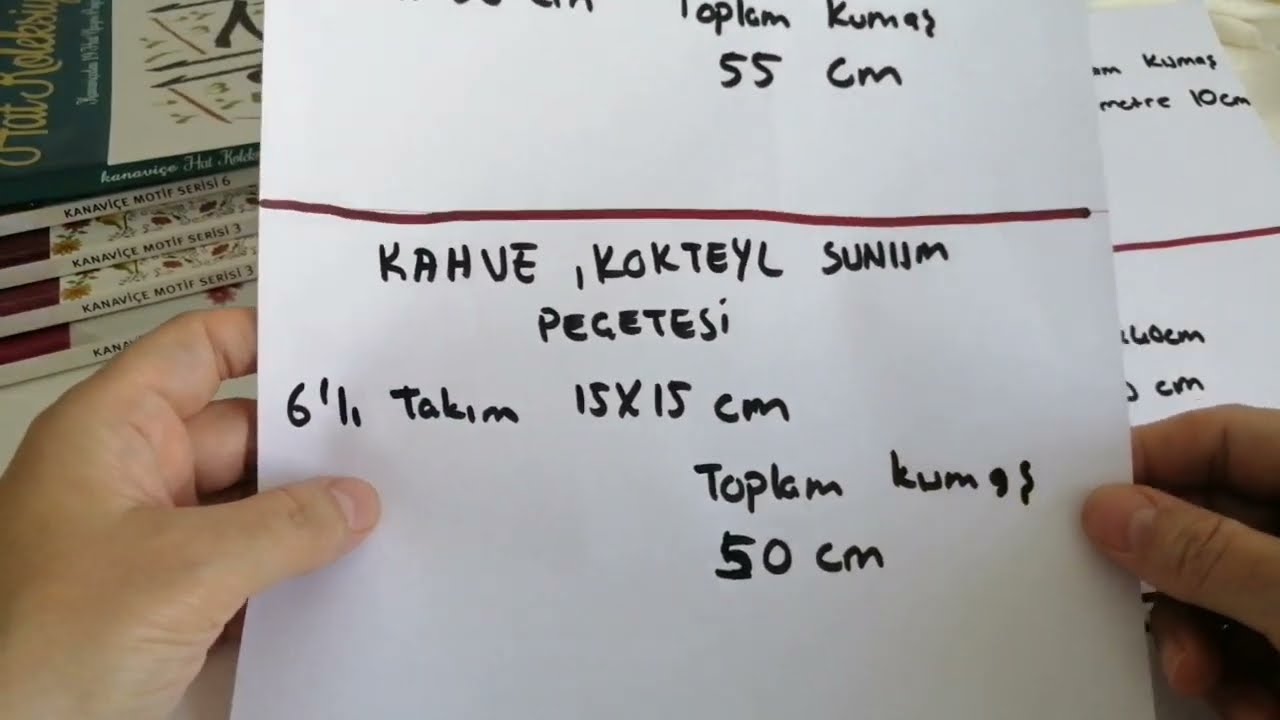 cm
Toplam Kumaş
55 cm
KAHVE, KOKTEYL SUNUM
PEÇETESİ
6'lı Takım 15X15 cm
Toplam kumaş
50 cm
Kumaş
metre 10cm
cm
Hat Koleksiy
kanaviçe Hat Koleks
KANAVİÇE MOTİF SERİSİ 6
KANAVİÇE MOTİF SERİSİ 3
KANAVİÇE MOTİF SERİSİ 3
KANAV